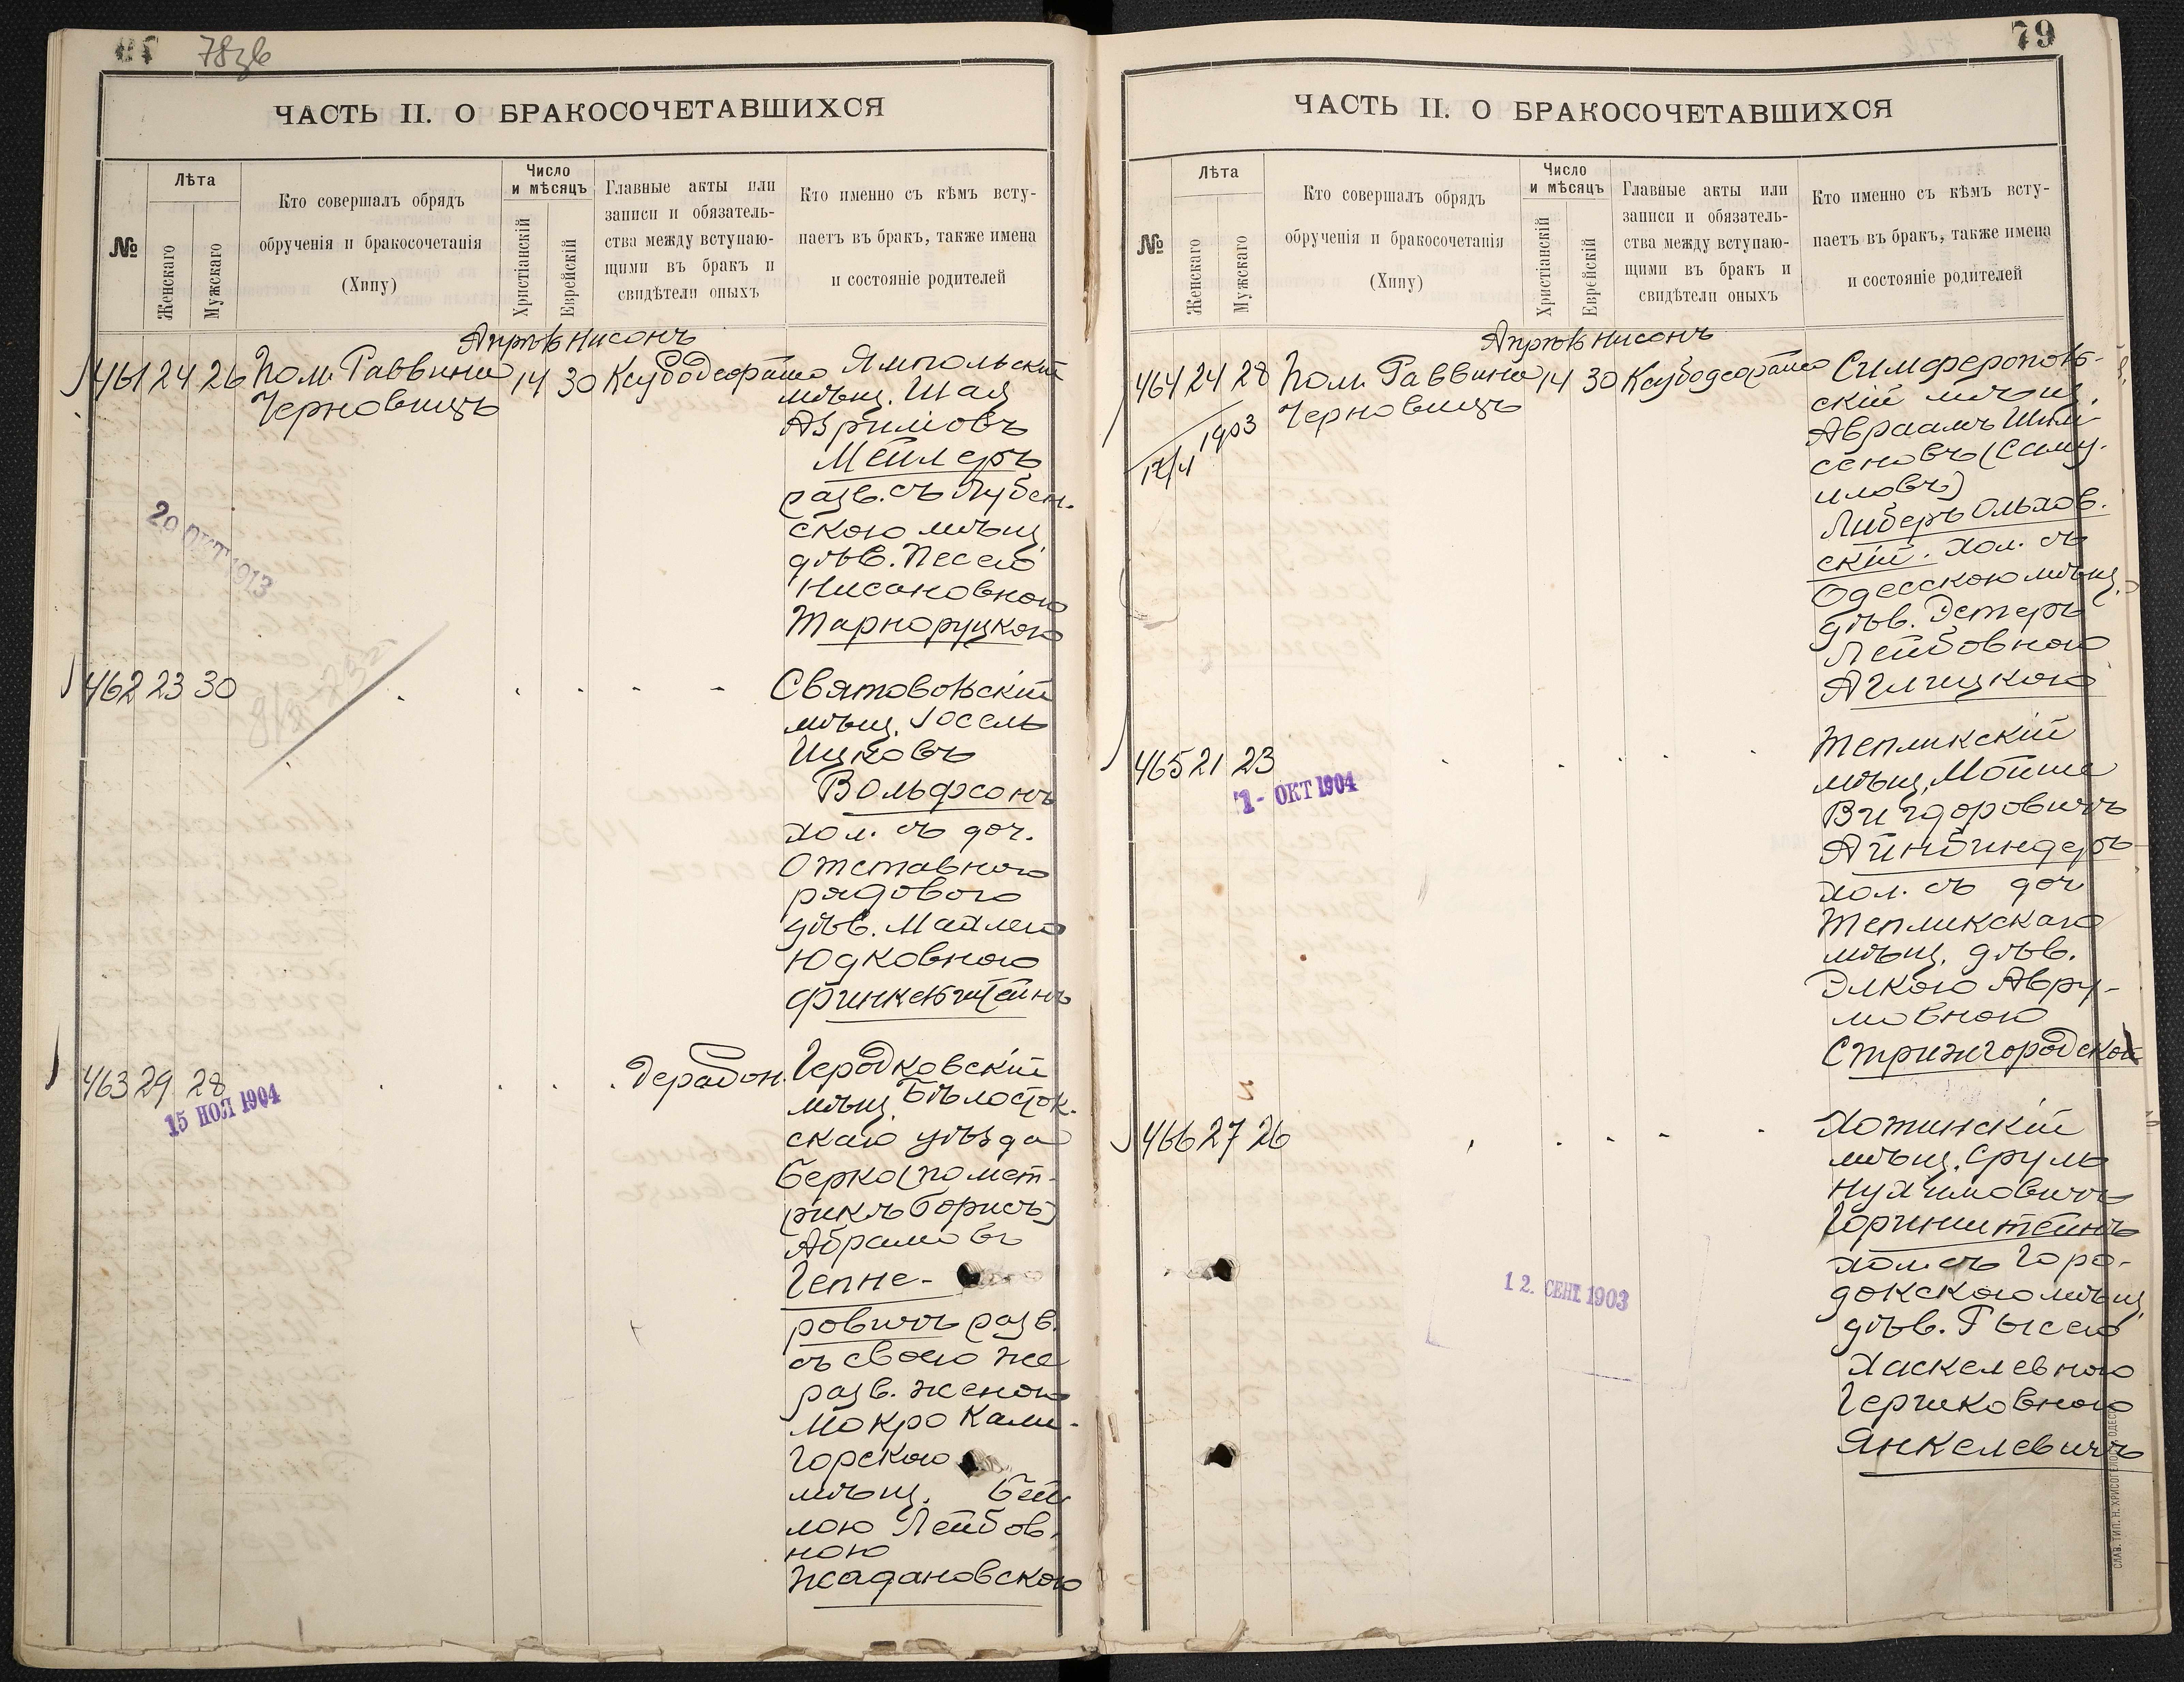 78зв
ЧАСТЬ II. О БРАКОСОЧЕТАВШИХСЯ
№
Лѣта
Женскаго
Мужскаго
Кто совершалъ обрядъ
обрученія и бракосочетанія
(Хипу)
Число
и мѣсяцъ
Христіанскій
Еврейскій
Главные акты или
записи и обязатель-
ства между вступаю-
щими въ бракъ и
свидѣтели оныхъ
Кто именно съ кѣмъ всту-
паетъ въ бракъ, также имена
и состояніе родителей
Апрѣль Нисонъ
461 24 26 Пом. Раввина 14 30 Ксубодеорайсо Ямпольскій
Черновицъ
мѣщ. Шая
Аврумовъ
Мейлеръ
разв. съ Лубен-
скою мѣщ.
дѣв. Песею
Нисановною
Тарноруцкою
20 ОКТ 1913
462 23 30
Святовольскій
мѣщ. Іосель
Ицковъ
Вольфсонъ
хол. съ доч.
Отставного
рядового
дѣв. Махлею
Юдковною
Финкельштейнъ
463 29 28
15 НОЯ 1904
дерабон.
Геродковскій
мѣщ. Бѣлосток-
скаго уѣзда
Берко (по мет-
рикѣ Борисъ)
Абрамовъ
Гепне-
ровичъ разв.
съ своею же
разв. женою
Мокро Кали-
горскою
мѣщ. Бей-
лою Лейбов-
ною
Жадановскою
79
ЧАСТЬ II. О БРАКОСОЧЕТАВШИХСЯ
№
Лѣта
Женскаго
Мужскаго
Кто совершалъ обрядъ
обрученія и бракосочетанія
(Хипу)
Число
и мѣсяцъ
Христіанскій
Еврейскій
Главные акты или
записи и обязатель-
ства между вступаю-
щими въ бракъ и
свидѣтели оныхъ
Кто именно съ кѣмъ всту-
паетъ въ бракъ, также имена
и состояніе родителей
Апрѣль Нисонъ
464 24 28 Пом. Раввина 14 30 Ксубодеорайсо Симферополь-
Черновицъ
1903
скій мѣщ.
Авраамъ Шим-
сеновъ (Саму-
иловъ)
Либеръ Ольхов-
скій. хол. съ
Одесскою мѣщ.
дѣв. Эстеръ
Лейбовною
Аглицкою
465 21 23
1 - ОКТ 1904
Тепликскій
мѣщ. Мойше
Вигдоровичъ
Айнбиндеръ
хол. съ доч
Тепликскаго
мѣщ. дѣв.
Элкою Авру-
мовною
Стрижгородской
466 27 26
12. СЕНТ 1903
Хотинскій
мѣщ. Сруль
Нухимовичъ
Горинштейнъ
хол. съ Горо-
докскою мѣщ.
дѣв. Гысею
Хаскелевною
Гершковною
Янкелевичъ
СЛАВ. ТИП. Н. ХРИСОГЕЛОСЪ ОДЕССА